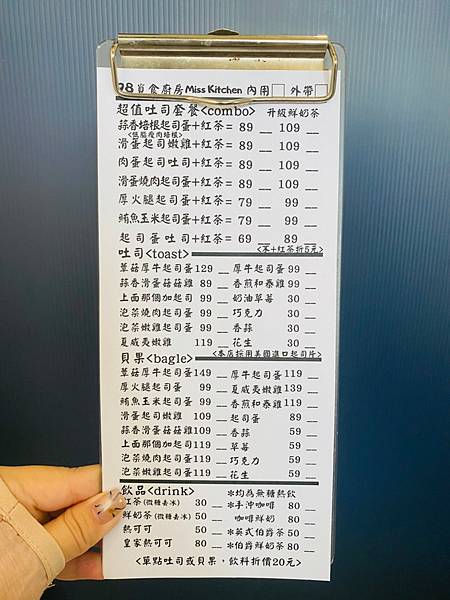 98覓食廚房Miss Kitchen 內用□ 外帶□
超值吐司套餐<combo> 升級鮮奶茶
蒜香培根起司蛋+紅茶= 89 __ 109 __
<低脂瘦肉培根>
滑蛋起司嫩雞+紅茶= 89 __ 109 __
肉蛋起司吐司+紅茶= 89 __ 109 __
滑蛋燒肉起司蛋+紅茶= 89 __ 109 __
厚火腿起司蛋+紅茶= 79 __ 99 __
鮪魚玉米起司蛋+紅茶= 79 __ 99 __
起司蛋吐司+紅茶= 69 __ 89 __
吐司<toast> <不+紅茶折5元>
蕈菇厚牛起司蛋129 __ 厚牛起司蛋99 __
蒜香滑蛋菇菇雞 89 __ 香煎和泰雞 99 __
上面那個加起司 99 __ 奶油草莓 30 __
泡菜燒肉起司蛋 99 __ 巧克力 30 __
泡菜嫩雞起司蛋 99 __ 香蒜 30 __
夏威夷嫩雞 119 __ 花生 30 __
貝果<bagle> <本店採用美國進口起司片>
蕈菇厚牛起司蛋149 __ 厚牛起司蛋119 __
厚火腿起司蛋 99 __ 夏威夷嫩雞139 __
鮪魚玉米起司蛋 99 __ 香煎和泰雞119 __
滑蛋起司嫩雞 109 __ 起司蛋 89 __
蒜香滑蛋菇菇雞109 __ 香蒜 59 __
上面那個加起司119 __ 草莓 59 __
泡菜燒肉起司蛋119 __ 巧克力 59 __
泡菜嫩雞起司蛋119 __ 花生 59 __
飲品<drink> *均為無糖熱飲
紅茶(微糖去冰) 30 __ *手沖咖啡 80 __
鮮奶茶(微糖去冰) 50 __ 咖啡鮮奶 80 __
熱可可 50 __ *英式伯爵茶50 __
皇家熱可可 80 __ *伯爵鮮奶茶80 __
<單點吐司或貝果，飲料折價20元>